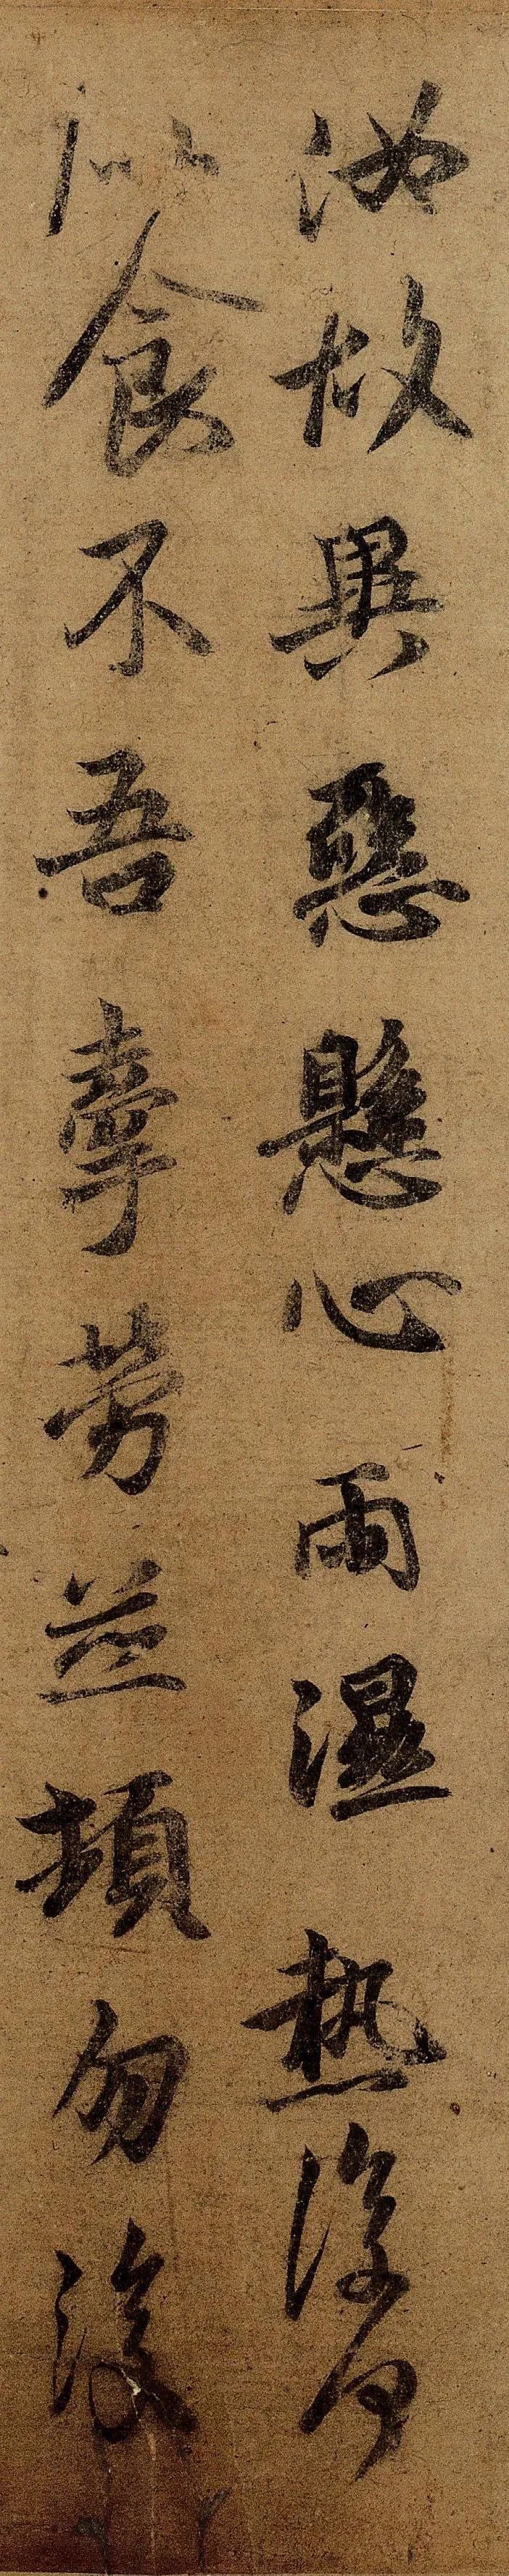 汝故異惡懸心雨濕热復何
以食不吾牽勞並頓勿復